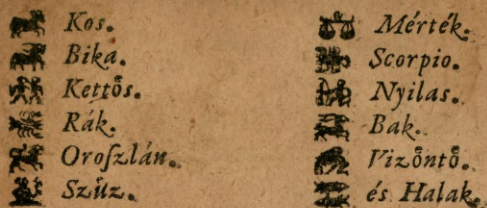 Kos.
Bika.
Kettős.
Rák.
Oroſzlán.
Szűz.
Mérték.
Scorpio.
Nyilas.
Bak.
Vizőntő.
és Halak.